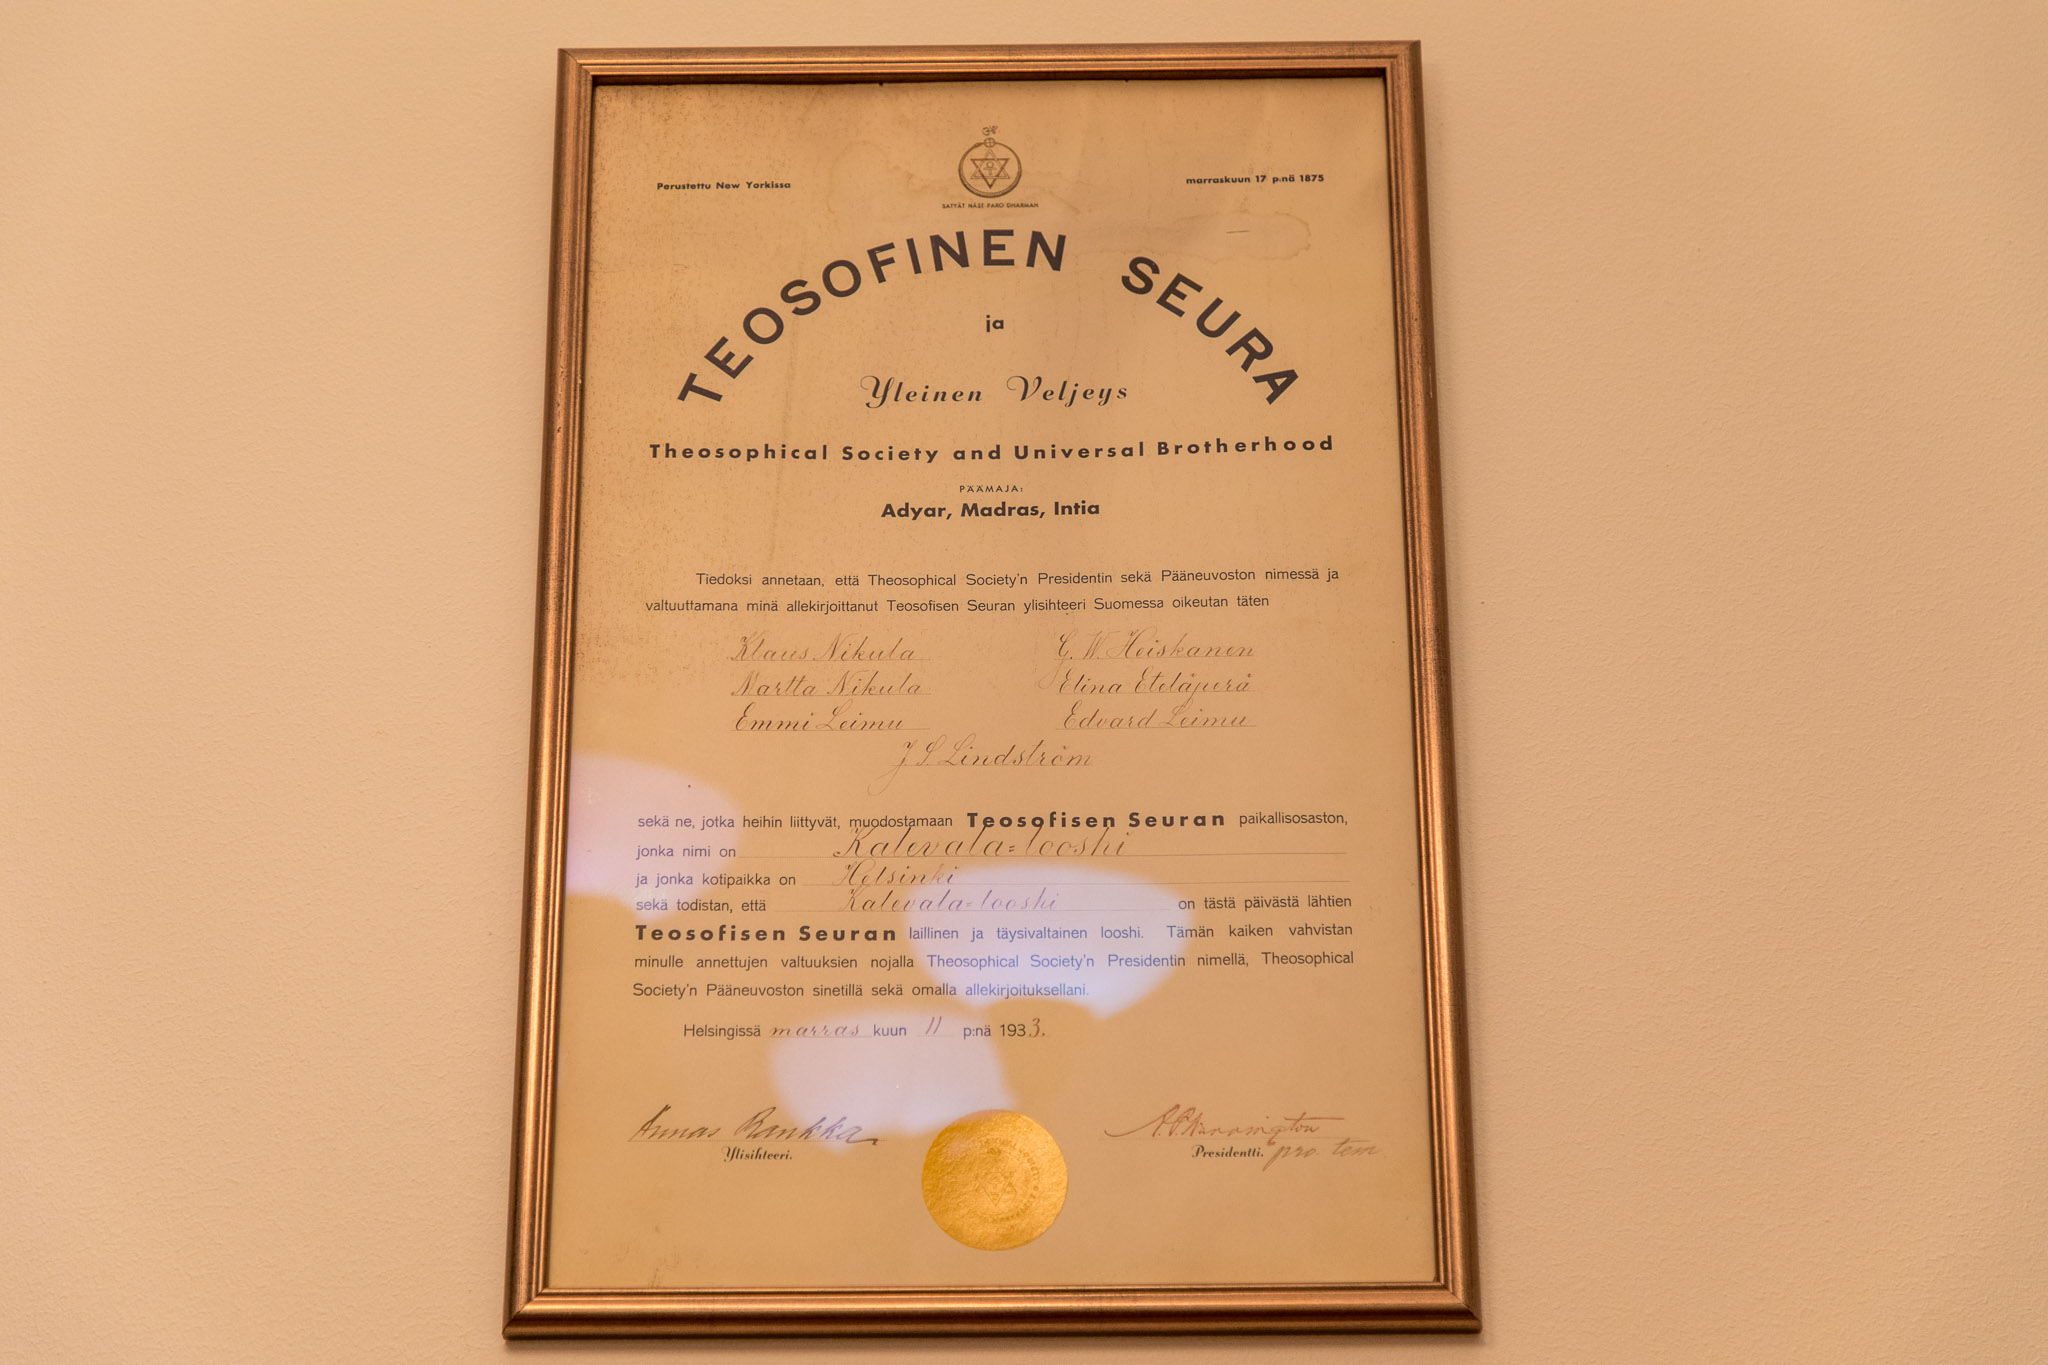 Perustettu New Yorkissa
marraskuun 17 p:nä 1875
SATYÂT NÂST PARO DHARMAH
TEOSOFINEN SEURA
ja
Yleinen Veljeys
Theosophical Society and Universal Brotherhood
PÄÄMAJA:
Adyar, Madras, Intia
Tiedoksi annetaan, että Theosophical Society'n Presidentin sekä Pääneuvoston nimessä ja
valtuuttamana minä allekirjoittanut Teosofisen Seuran ylisihteeri Suomessa oikeutan täten
Klaus Nikula
G. W. Heiskanen
Martta Nikula
Elina Eteläperä
Emmi Leimu
Edvard Leimu
J. S. Lindström
sekä ne, jotka heihin liittyvät, muodostamaan Teosofisen Seuran paikallisosaston,
jonka nimi on Kalevala=looshi
ja jonka kotipaikka on Helsinki
sekä todistan, että Kalevala=looshi on tästä päivästä lähtien
Teosofisen Seuran laillinen ja täysivaltainen looshi. Tämän kaiken vahvistan
minulle annettujen valtuuksien nojalla Theosophical Society'n Presidentin nimellä, Theosophical
Society'n Pääneuvoston sinetillä sekä omalla allekirjoituksellani.
Helsingissä marras kuun 11 p:nä 1933.
Armas Rankka
A. P. Warrington
Ylisihteeri.
Presidentti. pro. tem